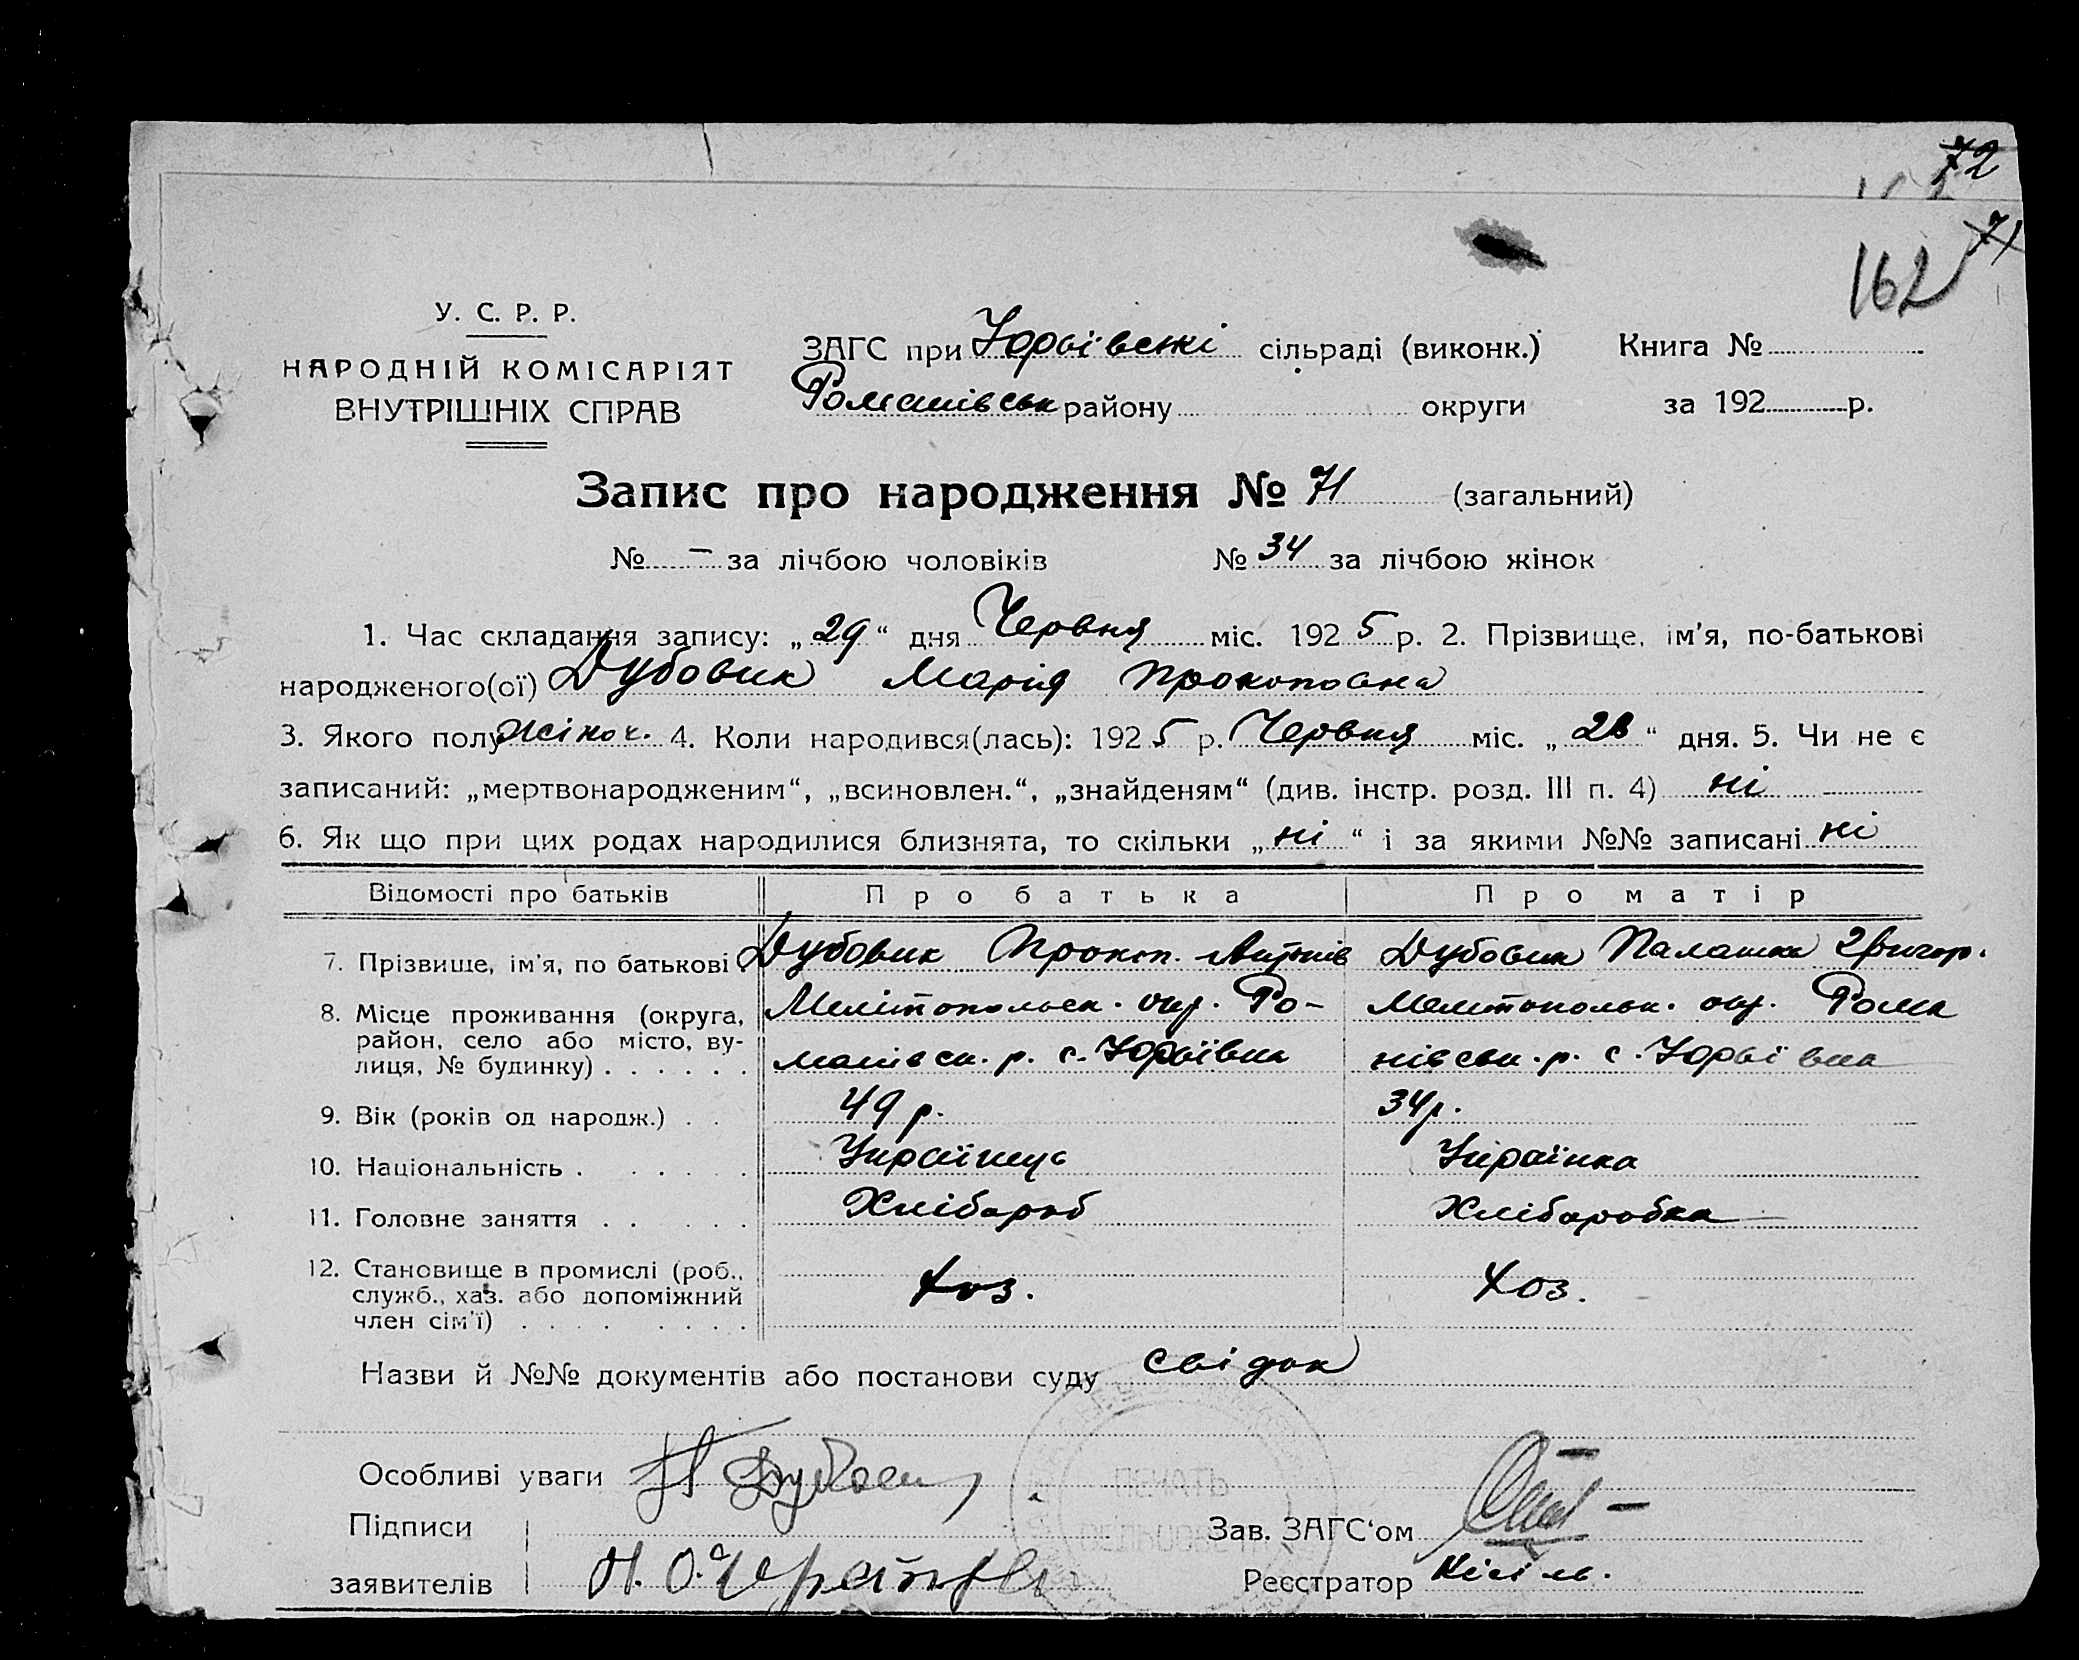 72
71
162
У. С. Р. Р.
НАРОДНІЙ КОМІСАРІЯТ
ВНУТРІШНІХ СПРАВ
ЗАГС при Юрьївскі сільраді (виконк.) Книга №
Романівськ району округи за 192 р.
Запис про народження № 71 (загальний)
№ – за лічбою чоловіків № 34 за лічбою жінок
1. Час складання запису: „29“ дня Червня міс. 1925 р. 2. Прізвище, ім'я, по-батькові
народженого(ої) Дубовик Марія Прокоповна
3. Якого полу жіноч. 4. Коли народився(лась): 1925 р. Червня міс. „28“ дня. 5. Чи не є
записаний: „мертвонародженим“, „всиновлен.“, „знайденям“ (див. інстр. розд. III п. 4) ні
6. Як що при цих родах народилися близнята, то скільки „ні“ і за якими №№ записані ні
Відомості про батьків Про батька Про матір
7. Прізвище, ім'я, по батькові Дубовик Прокоп. Антонів Дубовик Палашка Григор.
8. Місце проживання (округа, Мелітопольск. окр. Ро- Мелітопольк. окр. Рома
район, село або місто, ву- манівськ. р. с. Юрьївка нівськ. р. с. Юрьївка
лиця, № будинку)
9. Вік (років од народж.) 49 р. 34 р.
10. Національність Українець Українка
11. Головне заняття Хлібороб Хліборобка
12. Становище в промислі (роб., Хоз. Хоз.
служб., хаз. або допоміжний
член сім'ї)
Назви й №№ документів або постанови суду свідок
Особливі уваги П Дубовик
Підписи Зав. ЗАГС'ом
заявителів Реєстратор
ПЕЧАТЬ